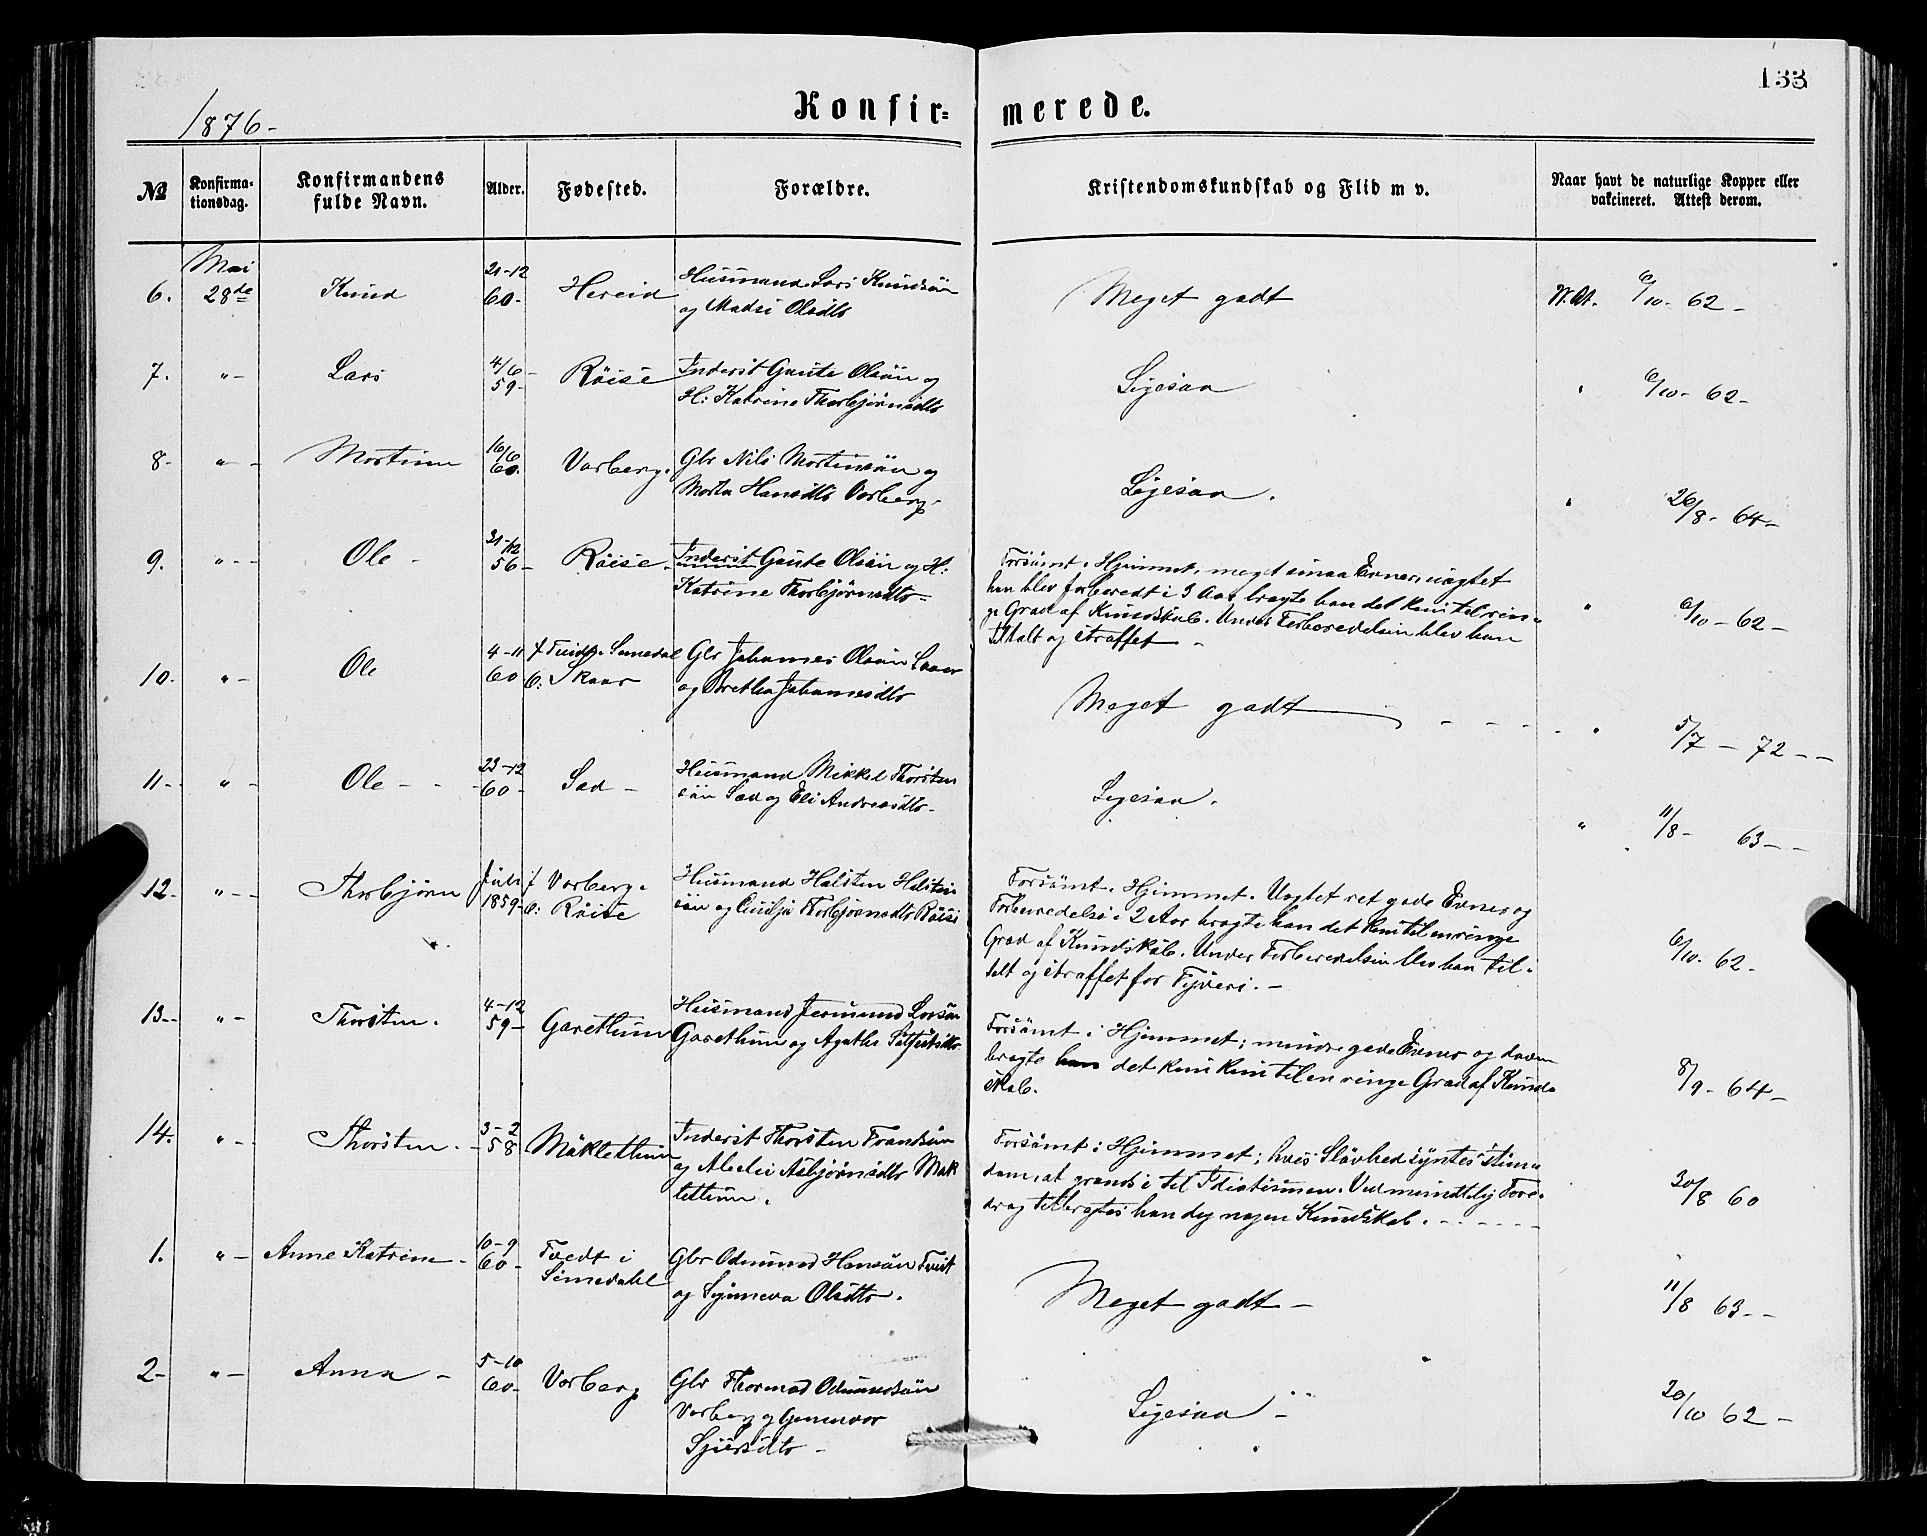 133
1876-
Konfir= merede.
№ Konfirma=tionsdag. Konfirmandens fulde Navn. Alder. Fødested. Forældre. Kristendomskundskab og Flid m v. Naar havt de naturlige Kopper eller vakcineret. Attest derom.
Mai
6. 28de Knud 21-12 60- Hereid Husmand Lars Knudsön
og Madsi Olsdtr Meget godt 6/10- 62-
7. "- Lars 4/6- 59- Röise Inderst Gaute Olsön og
H: Katrine Thorbjörnsdtr Ligesaa " 6/10- 62-
8- "- Mortinn 16/6 60. Varberg. Gbr Nils Mortensön og
Marta Hansdtr Varberg. Ligesaa. " 26/8- 64-
9. "-- Ole - 31-12 56- Röise. Inderst Gaute Olsön og H:
Katrine Thorbjörnsdtr- Forsömt i Hjemmet, meget smaa Evner, uagtet
han blev forberedt i 3 Aar bragte han det kun til rin-
ge Grad af Kundskab. Under Forberedelsen blev han
tiltalt og straffet - " 6/10-62-
10. "- Ole 4-11 60 f Tveidt i Simedal
O: Skaar Gbr Johannes Olsön
og Bretha Johannesdtr Meget godt - - - - " 5/7-72--
11- "- Ole - - 23-12 60- Sad - Husmand Mikkel Thorsten
sön Sæd og Eli Andreasdtr- Ligesaa. " 11/8- 63--
12- "-- Thorbjörn Juli 1859- f Varberg.
O: Röise Husmand Halsten Halstein
sön og Thorbjörnsdtr Röise Forsömt i Hjemmet. Uagtet ret gode Evner og
Forberedelse i 2 Aar bragte han det kun til en ringe
Grad af Kundskab. Under Forberedelsen blev han til-
talt og straffet for Tyveri. - 6/10. 62-
13-- "- Thorsten. 4-12 59- Garethum Husmand Jermund Larsön
Garethum og Agatha Forsömt i Hjemmet; mindre gode Evner og
bragte det kun kun til en ringe Grad af Kund-
skab. 8/9- 64-
14. "- Thorsten. 3-2 -58 Mäklethum Inderst Thorsten Frandsön
og Asbjörnsdtr Mäk
lethum. Forsömt i Hjemmet; hvis Slövhed syntes stun-
dom, at grændse til Idiotismen. Ved mundtlig Fore-
drag tilbragtes han dog nogen Kundskab. ----- 30/8 60
1. "- Anne Katrine- 10-9 60- Tvedt i
Simedahl Gbr Odmund Hansön Tveit
og Synneva Olsdtr. Meget godt- " 11/8 63--
2- "- Anna - 5-10 60- Varberg Gbr Thormod Odmundsön
Varberg og Gunnvor
Sjursdtr- Ligesaa - 20/10 62-